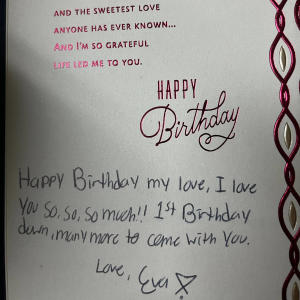 AND THE SWEETEST LOVE
ANYONE HAS EVER KNOWN...
AND I'M SO GRATEFUL
LIFE LED ME TO YOU.
HAPPY
Birthday
Happy Birthday my love, I love
you so, so, so much!! 1st Birthday
down, many more to come with you.
Love, Eva